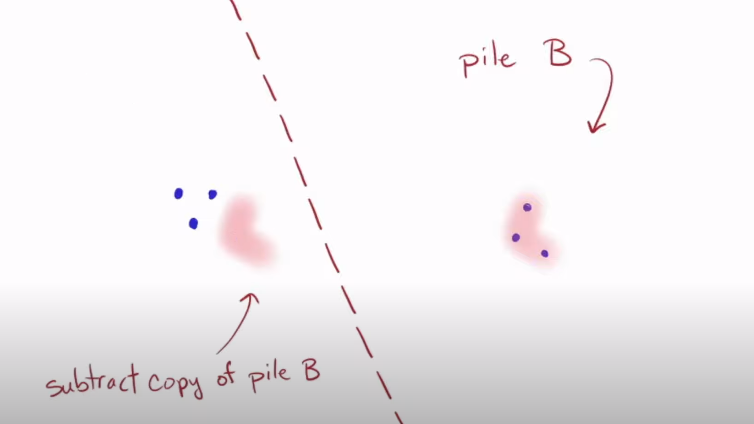 pile B
subtract copy of pile B